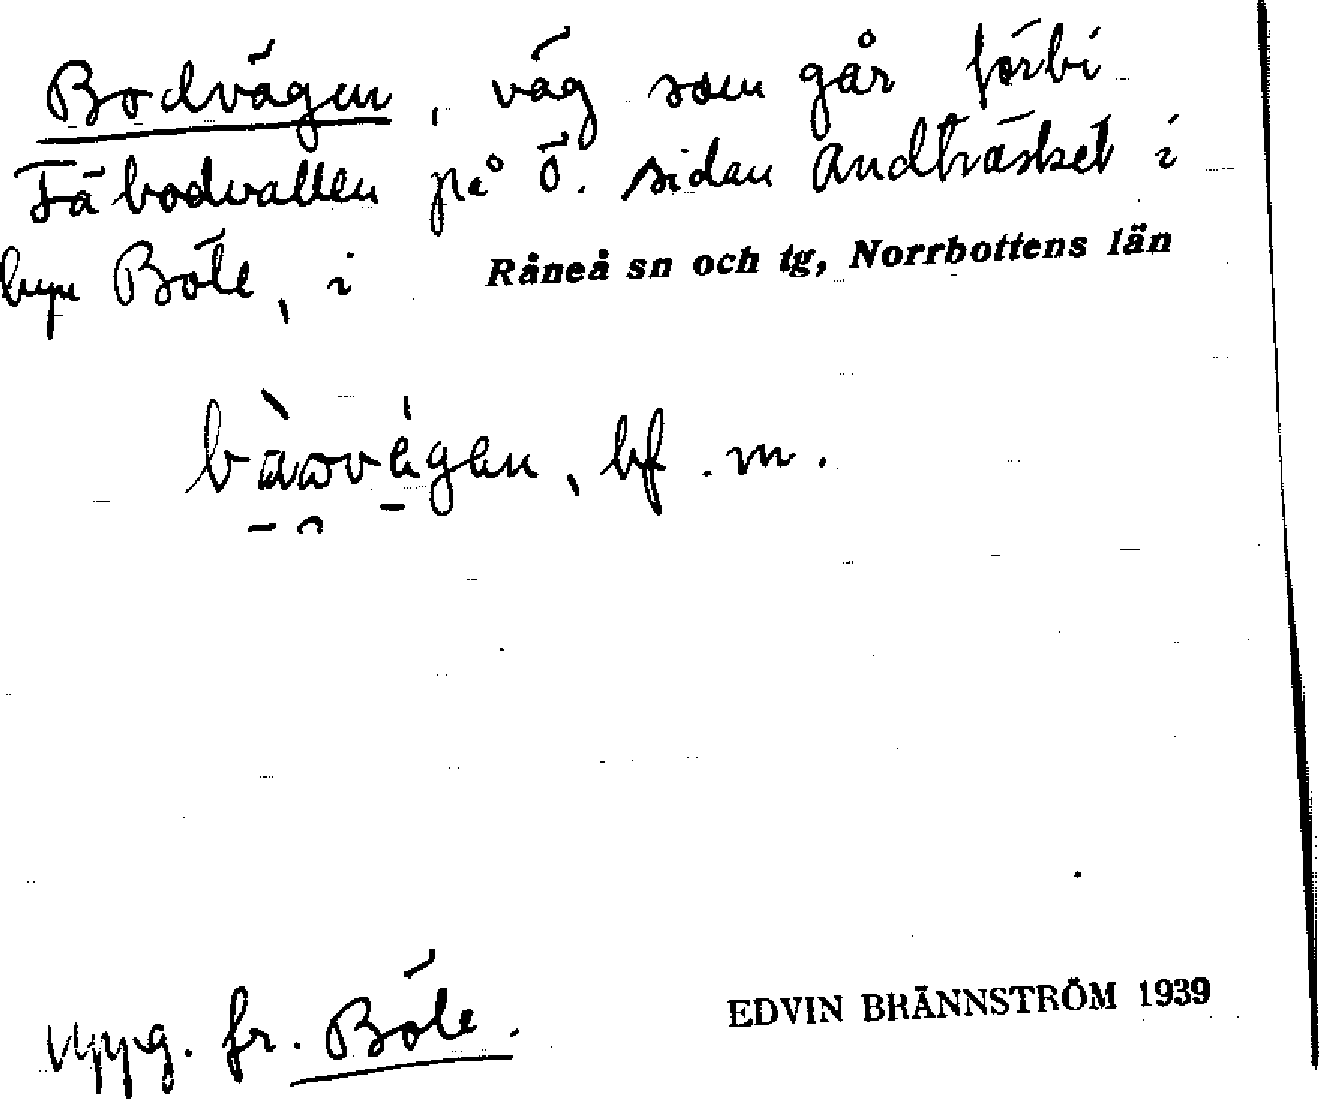 Bodvägen, väg som går förbi
Fäbodvallen på Ö. sidan Andträsket i
byn Böle, i Råneå sn och tg, Norrbottens län
bf. m.
Uppg. fr. Böle.
EDVIN BRÄNNSTRÖM 1939